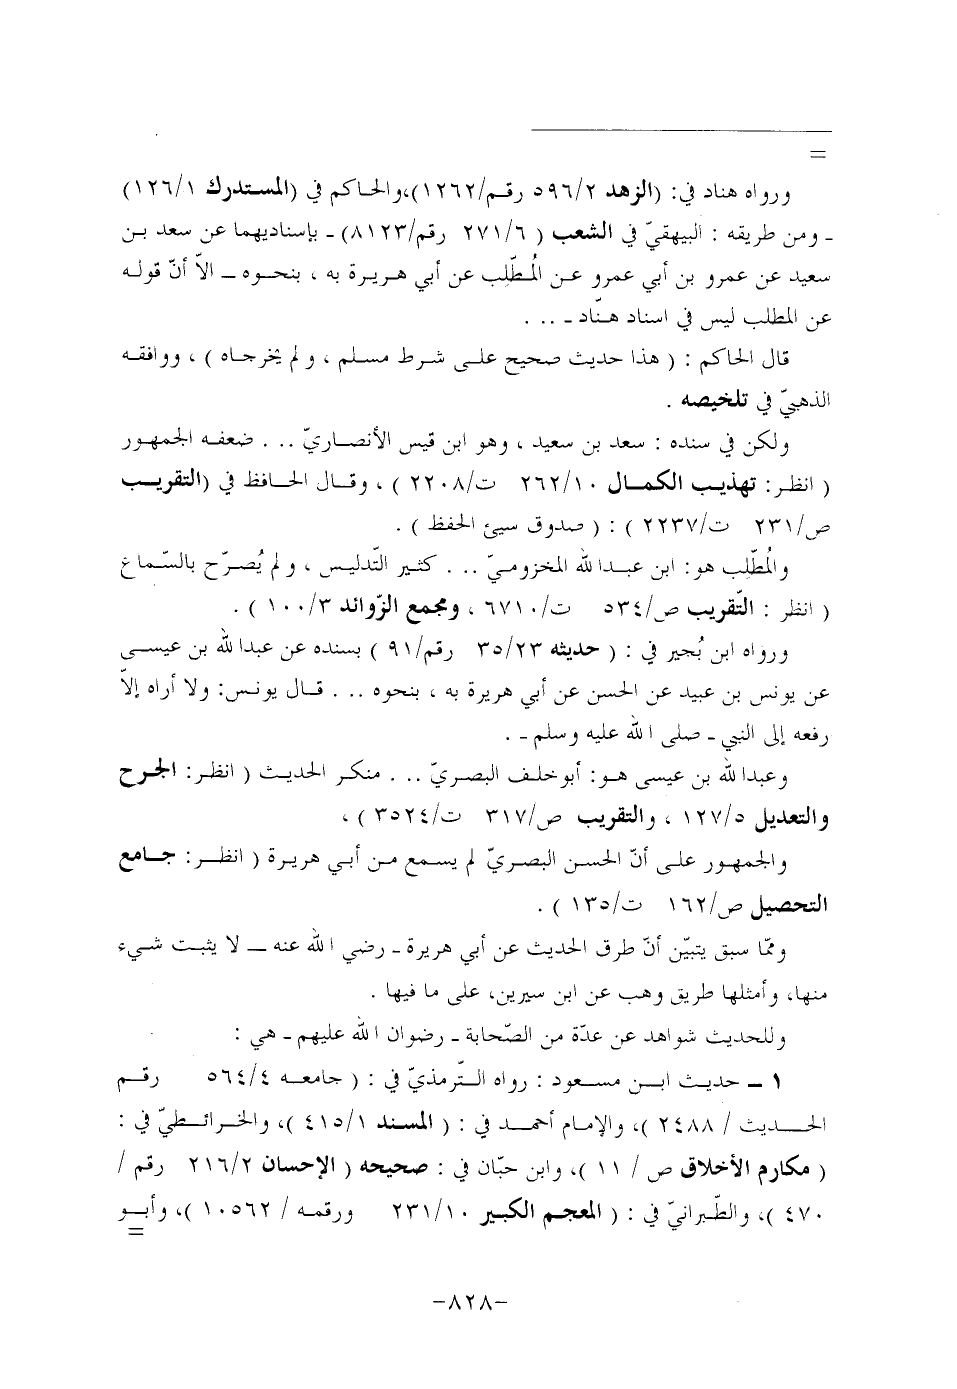 =
ورواه هناد في: (الزهد ٥٩٦/٢ رقم/١٢٦٢)،والحاكم في (المستدرك ١٢٦/١)
ـ ومن طريقه : البيهقيّ في الشعب ( ٢٧١/٦ رقم/٨١٢٣)ـ بإسناديهما عن سعد بن
سعيد عن عمرو بن أبي عمرو عن المُطّلِب عن أبي هريرة به ، بنحوه ــ الاّ أنّ قوله
عن المطلب ليس في اسناد هنّاد ـ .. .
قال الحاكم : ( هذا حديث صحيح على شرط مسلم ، ولم يخرجاه ) ، ووافقه
الذهبيّ في تلخيصه .
ولكن في سنده : سعد بن سعيد ، وهو ابن قيس الأنصاريّ .. . ضعفه الجمهور
( انظر: تهذيب الكمال ٢٦٢/١٠ ت/٢٢٠٨ ) ، وقال الحافظ في (التقريب
ص/٢٣١ ت/٢٢٣٧ ) : ( صدوق سيئ الحفظ ) .
والمُطّلِب هو: ابن عبدالله المخزوميّ .. . كثير التّدليس ، ولم يُصرّح بالسّماع
( انظر : التّقريب ص/٥٣٤ ت/٦٧١٠ ، ومجمع الزّوائد ١٠٠/٣ ) .
ورواه ابن بُجير في : ( حديثه ٣٥/٢٣ رقم/٩١ ) بسنده عن عبدالله بن عيسى
عن يونس بن عبيد عن الحسن عن أبي هريرة به ، بنحوه .. . قال يونس: ولا أراه إلاّ
رفعه إلى النبي ـ صلى الله عليه وسلم ـ .
وعبدالله بن عيسى هو: أبوخلف البصريّ .. . منكر الحديث ( انظر: الجرح
والتعديل ١٢٧/٥ ، والتقريب ص/٣١٧ ت/٣٥٢٤ ) ،
والجمهور على أنّ الحسن البصريّ لم يسمع من أبي هريرة ( انظر: جامع
التحصيل ص/١٦٢ ت/١٣٥ ) .
وممّا سبق يتبيّن أنّ طرق الحديث عن أبي هريرة ـ رضي الله عنه ــ لا يثبت شيء
منها، وأمثلها طريق وهب عن ابن سيرين، على ما فيها .
وللحديث شواهد عن عدّة من الصّحابة ـ رضوان الله عليهم ـ هي :
١ ــ حديث ابن مسعود : رواه التّرمذيّ في : ( جامعه ٥٦٤/٤ رقم
الحديث / ٢٤٨٨ )، والإمام أحمد في : ( المسند ٤١٥/١ )، والخرائطيّ في :
( مكارم الأخلاق ص / ١١ )، وابن حبّان في : صحيحه ( الإحسان ٢١٦/٢ رقم /
٤٧٠ )، والطّبرانيّ في : ( المعجم الكبير ٢٣١/١٠ ورقمه / ١٠٥٦٢ )، وأبو
=
-٨٢٨-